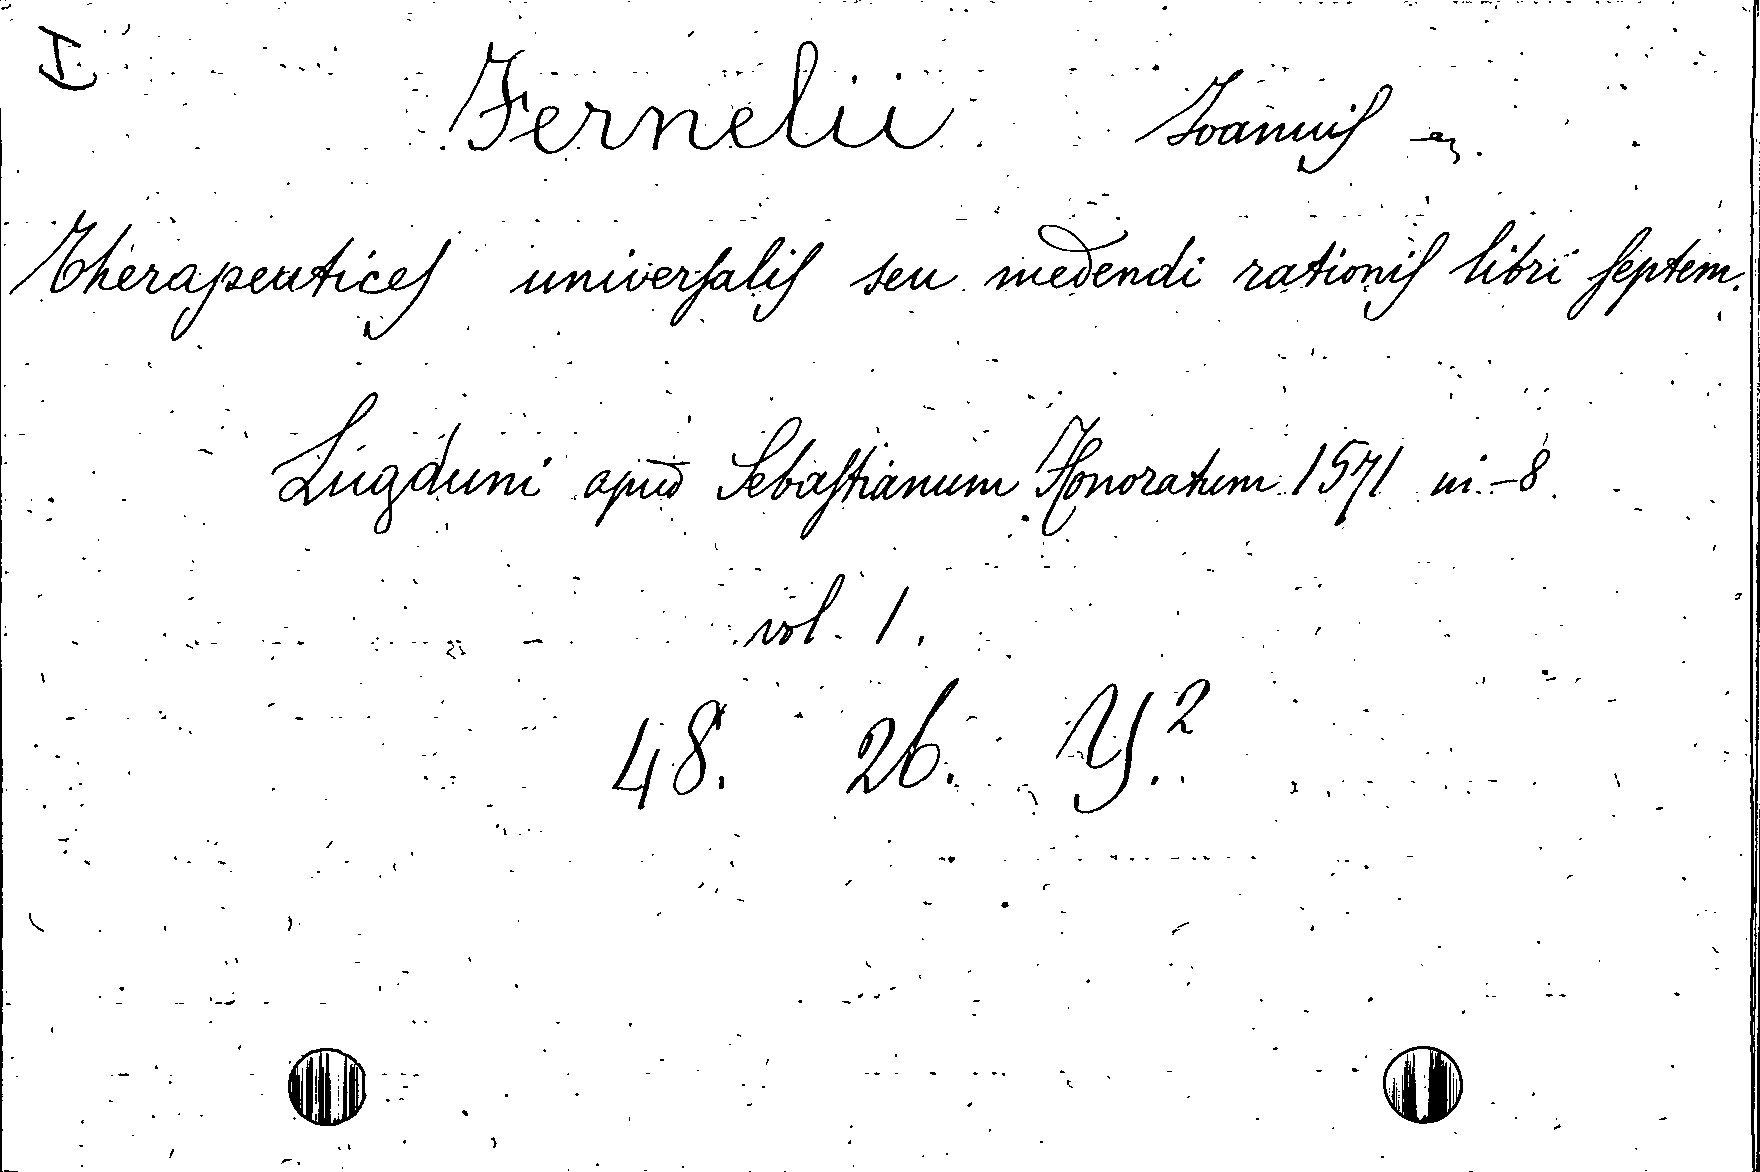 I
Fernelii Joannis
Therapeutices universalis seu medendi rationis libri septem.
Lugduni apud Sebastianum Honoratum 1571 in-8.
vol. 1.
48. 26. Y.²